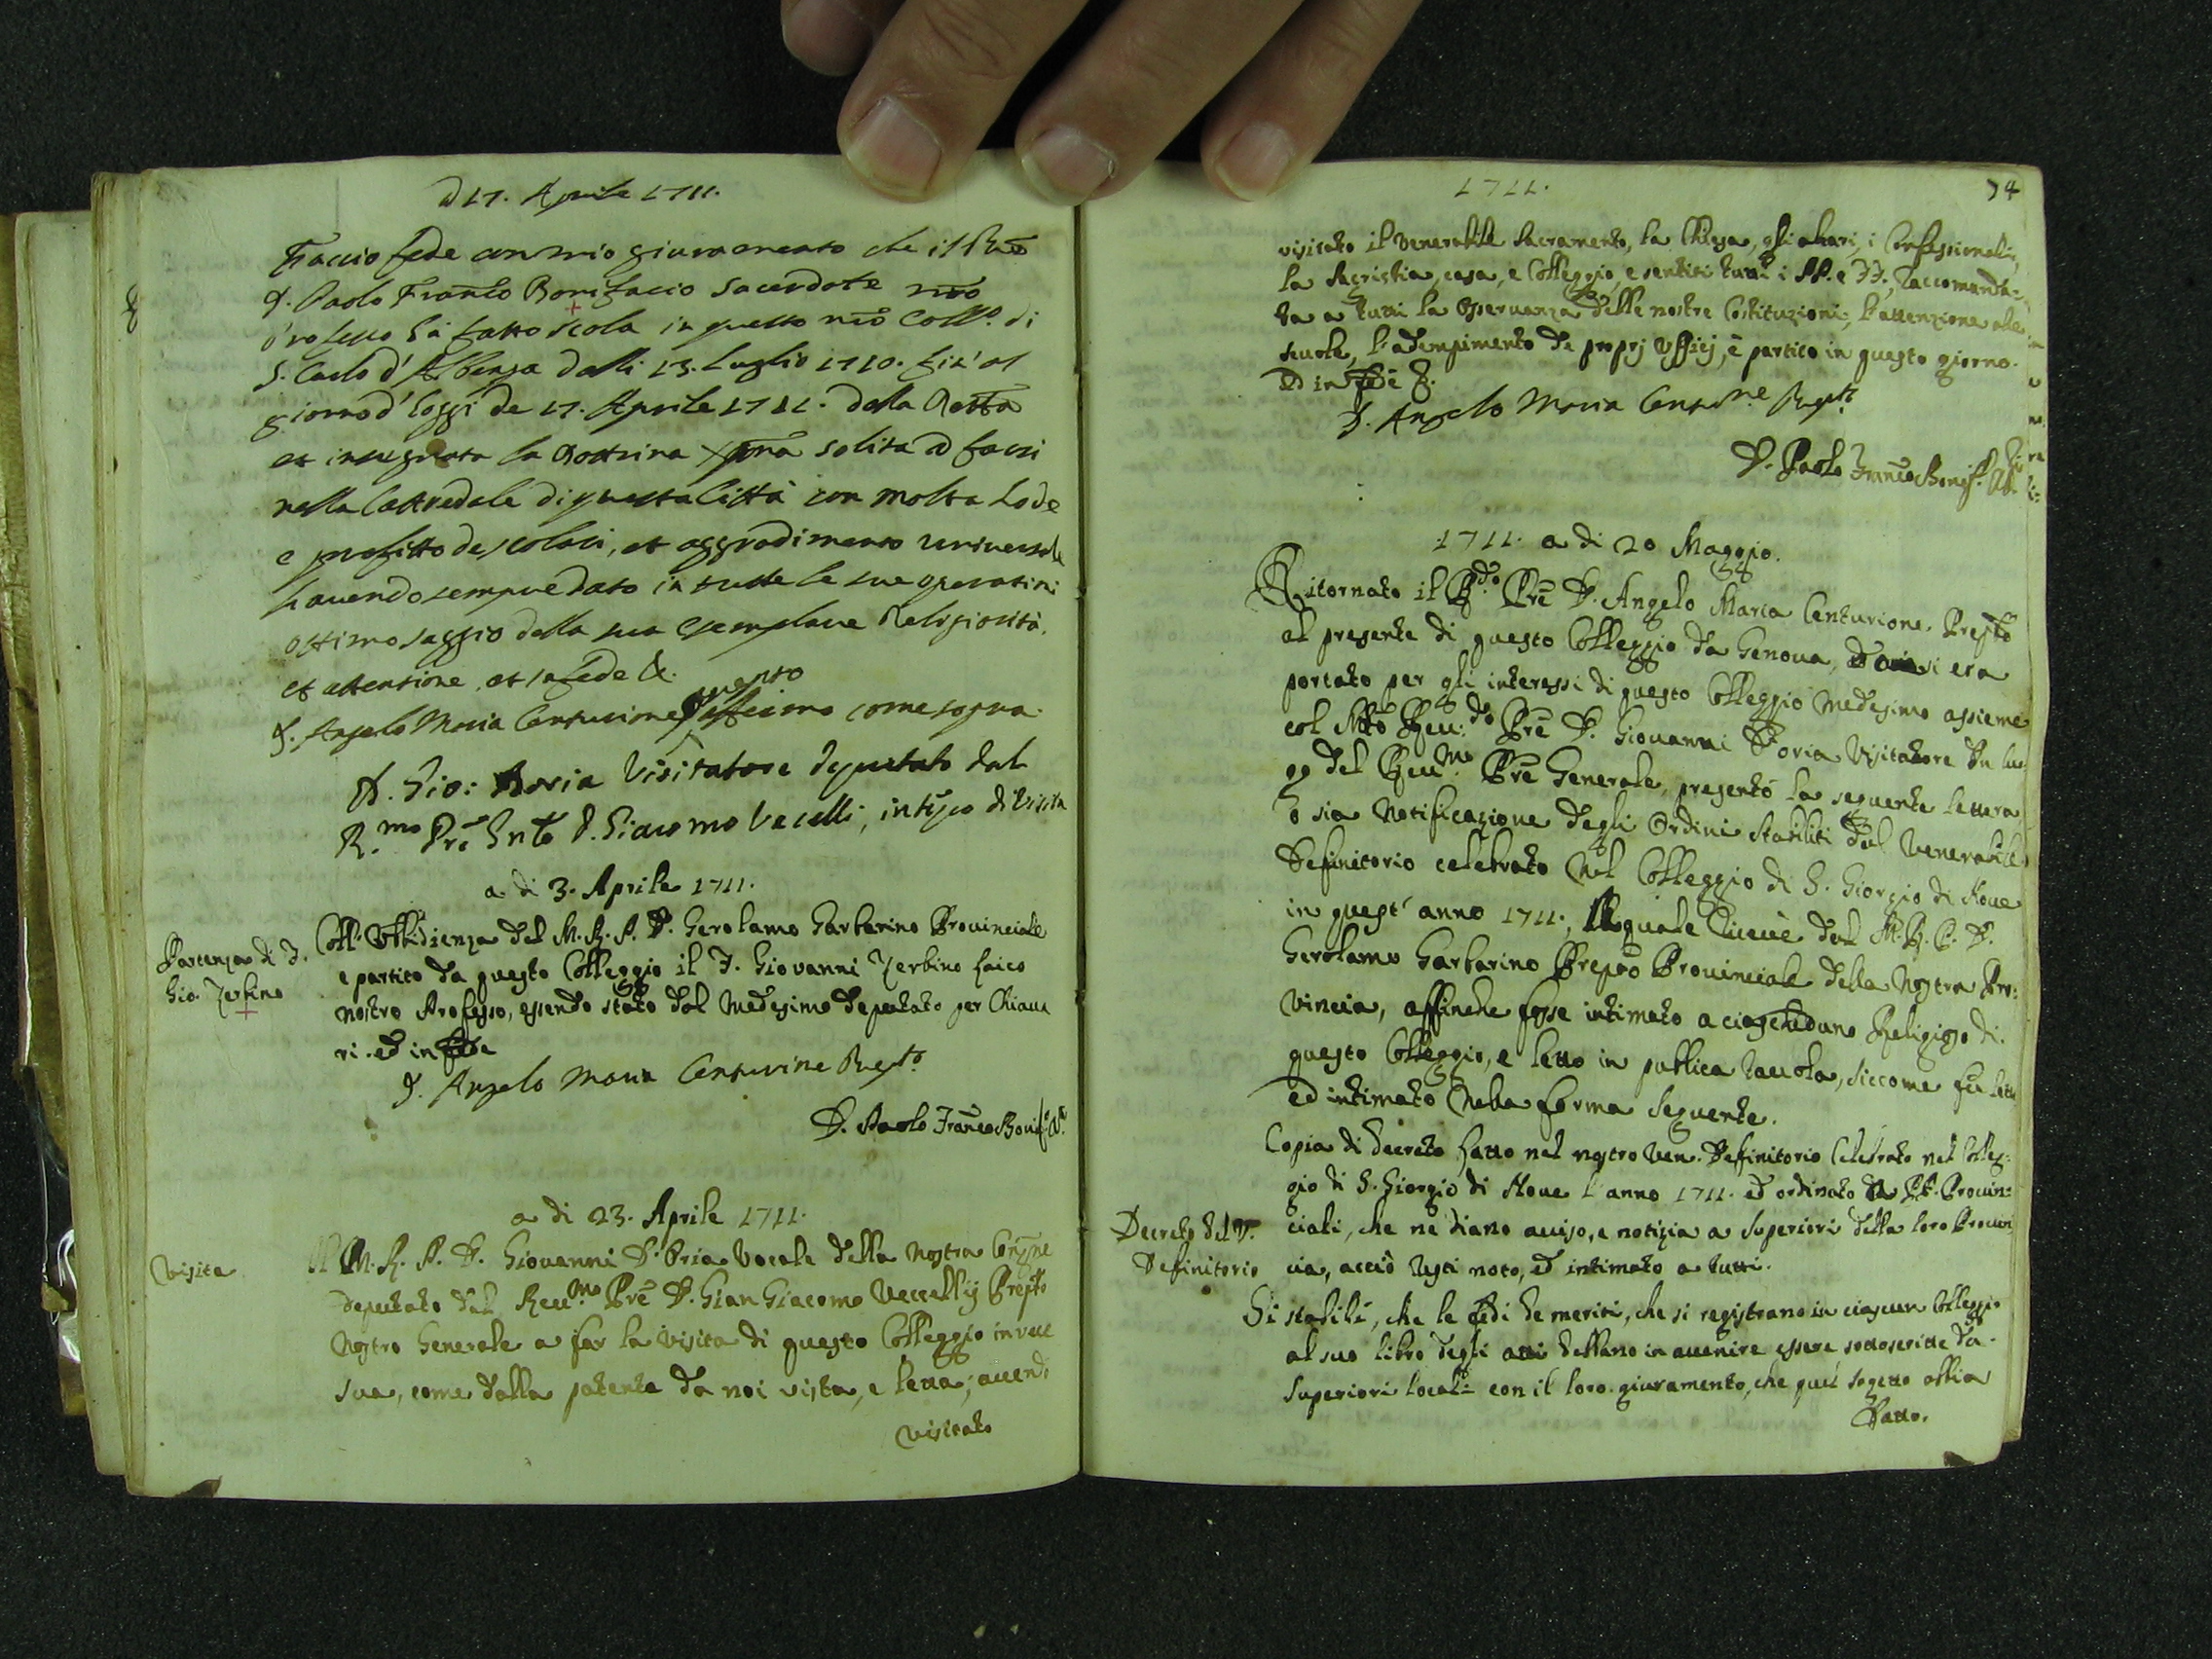 a 17. Aprile 1711.
Faccio fede con mio giuramento che il Prē
D. Paolo Franco Bonifacio Sacerdote nrō
professo hà fatto scola in questo nrō Coll.o di
S. Carlo d'Albenga dalli 13. Luglio 1710. fin' al
giorno d'hoggi de 17. Aprile 1711. della
et insegnata la Dottrina Xpna solita a farsi
nella Cattredale di questa Città con molta Lode
e profitto de scolari, et aggradimento universale
havendo sempre dato in tutte le sue operationi
ottimo saggio della sua esemplare Religiosità,
et attentione, et in fede &.
D. Angelo Maria Centurione come sopra.
D. Gio: Doria Visitatore deputato dal
R.mo Prē Gnle D. Giacomo Vecelli, in di Visita
a di 3. Aprile 1711.
Partenza di F.
Gio. Zerbino
Coll' Ubbidienza del M. R. P. D. Gerolamo Garbarino Provinciale
e partito da questo Colleggio il F. Giovanni Zerbino laico
nostro Professo, essendo stato dal medesimo deputato per Chiava
ri. ed in fede
D. Angelo Maria Centurione Prep.to
D. Paolo Franco Bonif.o
a di 23. Aprile 1711.
Visita
Il M. R. P. D. Giovanni D'Oria Vocale della nostra Congne
deputato dal Reu.mo Prē D. Gian Giacomo Veccellij Prepto
Nostro Generale a far la visita di questo Colleggio in vece
sua, come dalla patente da noi vista, e letta; avendo
visitato
1711.
74
visitato il Venerabile Sacramento, la Chiesa, gli altari, i Confessionali,
la Sacristia, casa, e Colleggio, e sentiti tutti i PP. e FF., Raccomanda-
ta a tutti la osservanza delle nostre Costituzioni, l'attenzione alle
scuole, l'adempimento de proprj Ufficij, è partito in questo giorno.
Ed in fede &.
D. Angelo Maria Centurne Prep.to
D. Paolo Franco Bonif.o
1711. a di 20 Maggio.
Ritornato il R.do Prē D. Angelo Maria Centurione, Prepto
al presente di questo Colleggio da Genova, si era
portato per gli interessi di questo Colleggio medesimo assieme
col Mto Reu.do Prē D. Giovanni Doria Visitatore In luo-
go del Reu.mo Prē Generale, presentò la seguente lettera
o sia Notificazione degli Ordini stabiliti dal Venerabile
Definitorio celebrato nel Colleggio di S. Giorgio di Nove
in quest' anno 1711., la quale riceve dal M. R. P. D.
Gerolamo Garbarino Prepto Provinciale della Nostra Pro-
vincia, affinche fosse intimato a ciascheduno Religioso di
questo Colleggio, e letto in publica tavola, siccome fu letto
ed intimato nella forma seguente.
Copia di decreto fatto nel nostro Ven. Definitorio Celebrato nel Colleg-
gio di S. Giorgio di Nove l'anno 1711. ed ordinato da PP. Provin-
Decreto del V.
Definitorio
ciali, che ne diano avviso, e notizia a Superiori della loro Provin
cia, acciò resti noto, ed intimato a tutti.
Si stabilì, che le fedi de meriti, che si registrano in ciascun Colleggio
al suo libro degli atti debbano in avvenire essere sottoscritte da
Superiori locali con il loro giuramento, che quel sogetto abbia
fatto.